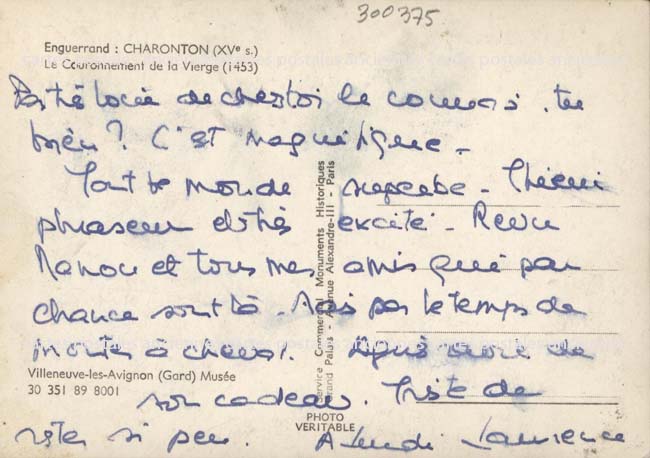 300375
Enguerrand : CHARONTON (XVe s.)
Le Couronnement de la Vierge (1453)
Pas très loin de chez toi le connais-tu
bien ? C'est magnifique -
Tout le monde superbe - Thierri
phraseur et très excité - Revu
Manou et tous mes amis qui par
chance sont là - Pas le temps de
monter à cheval. de
Villeneuve-les-Avignon (Gard) Musée
30 351 89 8001
son cadeau. Triste de
rester si peu. A Lundi Laurence
Service Commercial Monuments Historiques
Grand Palais - Avenue Alexandre-III - Paris
PHOTO
VERITABLE